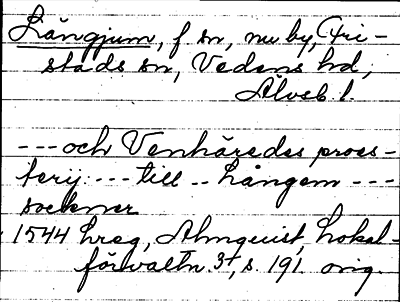 Långjum, f sn, nu by, Fri-
stads sn, Vedens hd,
Älvsb. l.
--- och Venhäredes proes-
terij: --- till -- Långem ---
sockner
1544 hreg, Almquist, Lokal-
förvaltn. 3², s. 191 orig.